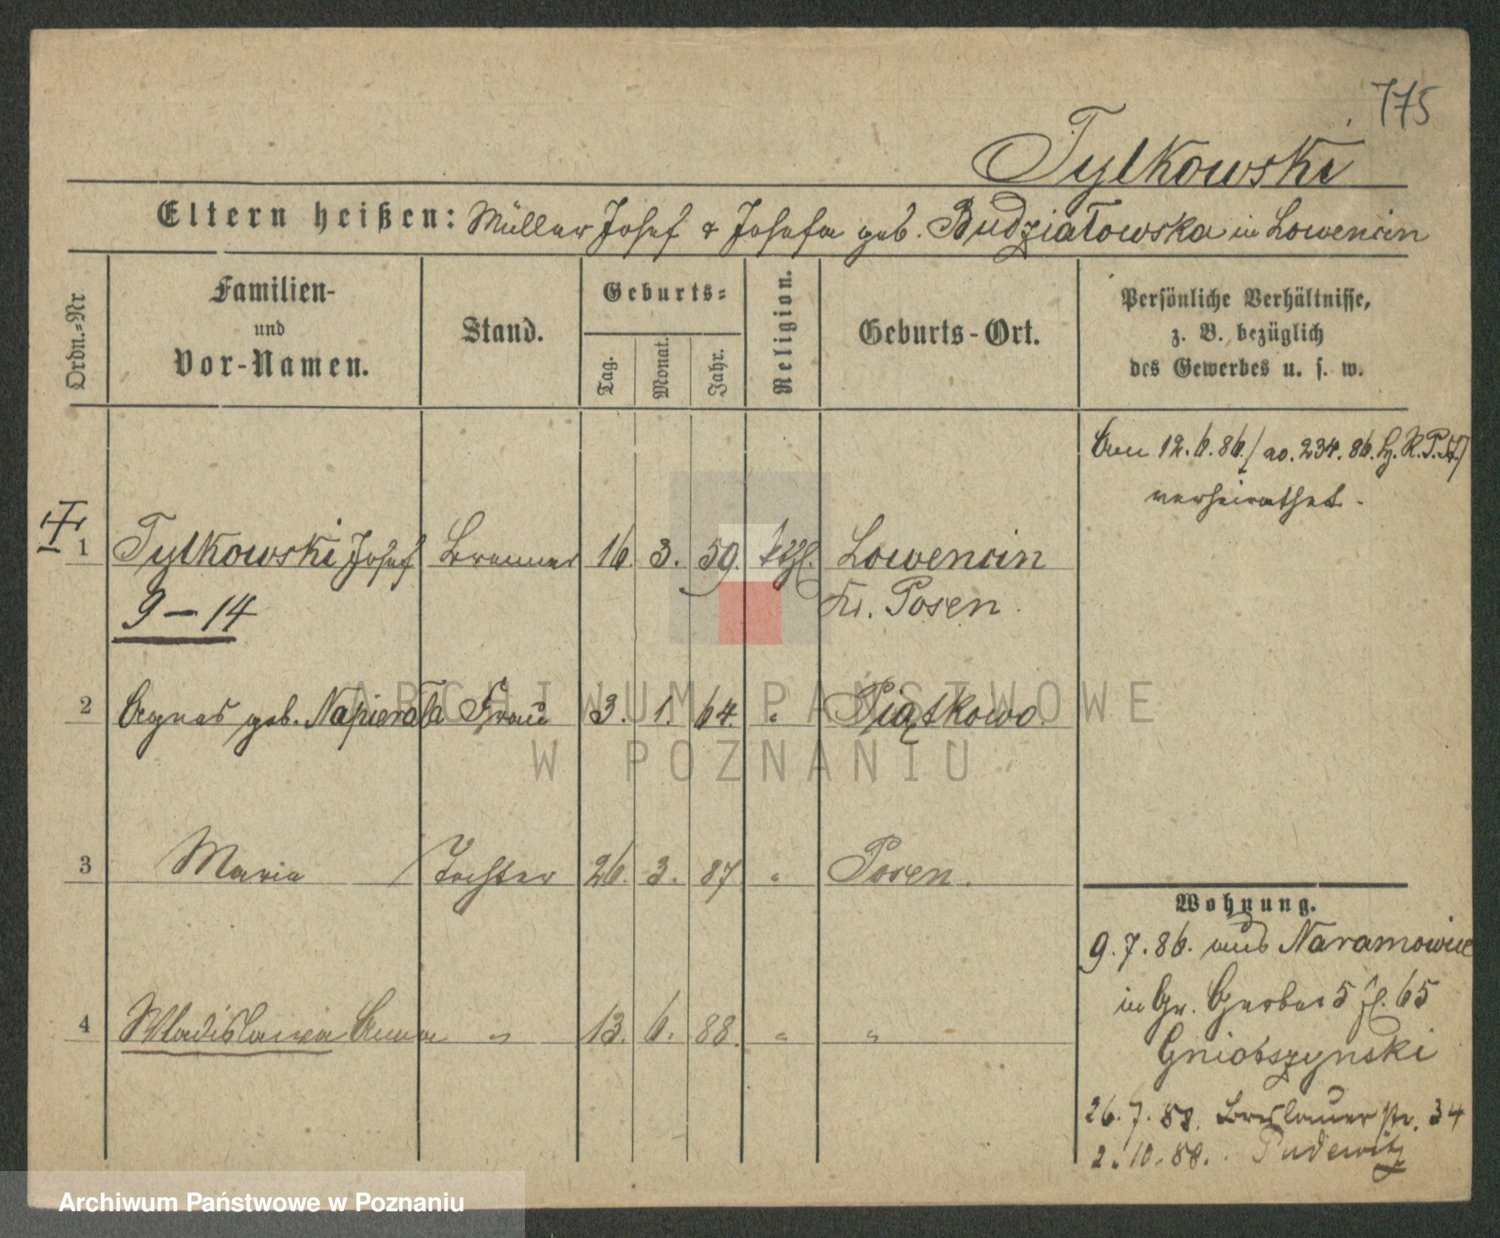 775
Tylkowski
Eltern heißen: Müller Josef & Josefa geb. Budziałowska in Lowencin
Ordn.=Nr
Familien-
und
Vor-Namen.
Stand.
Geburts=
Tag.
Monat.
Jahr.
Religion.
Geburts-Ort.
Persönliche Verhältnisse,
z. B. bezüglich
des Gewerbes u. s. w.
12.6.86. / no. 234. 86.
verheirathet.
1 Tylkowski Josef Brenner 16. 3. 59. ktl. Lowencin
9–14 Kr. Posen.
2 Agnes geb. Napierała Frau 3. 1. 64. " Piątkowo.
3 Maria Tochter 26. 3. 87 " Posen.
4 Wladislawa Anna " 13. 6. 88. " "
Wohnung.
9.7.86. aus Naramowice
in Gr. Gerber 5 fl. 65
Gniotszynski
26.7.88. Breslauer str. 34
2.10.88. Pudewitz
ARCHIWUM PAŃSTWOWE
W POZNANIU
Archiwum Państwowe w Poznaniu